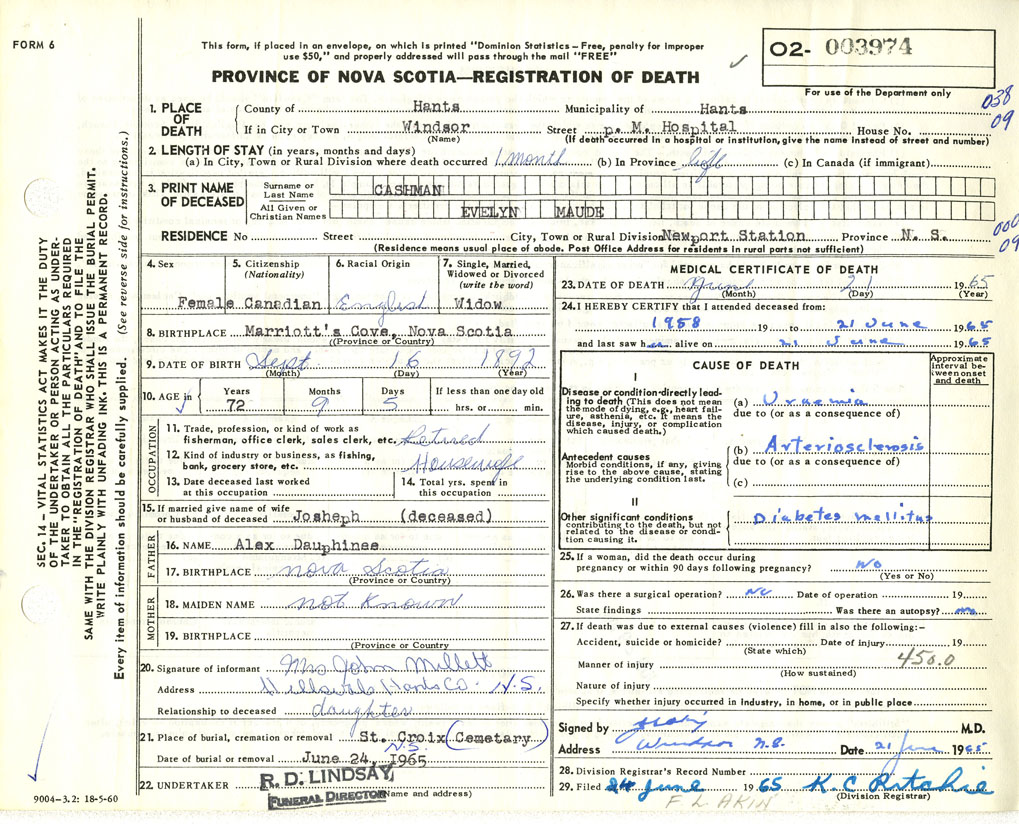 FORM 6
This form, if placed in an envelope, on which is printed "Dominion Statistics – Free, penalty for improper
use $50," and properly addressed will pass through the mail "FREE"
PROVINCE OF NOVA SCOTIA—REGISTRATION OF DEATH
O2- 003974
For use of the Department only
038
09
1. PLACE OF DEATH
County of Hants Municipality of Hants
If in City or Town Windsor Street p. M. Hospital House No.
(Name) (If death occurred in a hospital or institution, give the name instead of street and number)
2. LENGTH OF STAY (in years, months and days)
(a) In City, Town or Rural Division where death occurred 1 month (b) In Province life (c) In Canada (if immigrant)
3. PRINT NAME OF DECEASED
Surname or Last Name CASHMAN
All Given or Christian Names EVELYN MAUDE
RESIDENCE No Street City, Town or Rural Division Newport Station Province N. S.
(Residence means usual place of abode. Post Office Address for residents in rural parts not sufficient)
000
09
4. Sex
Female
5. Citizenship
(Nationality)
Canadian
6. Racial Origin
English
7. Single, Married, Widowed or Divorced
(write the word)
Widow
8. BIRTHPLACE Marriott's Cove, Nova Scotia
(Province or Country)
9. DATE OF BIRTH Sept 16 1892
(Month) (Day) (Year)
10. AGE in
Years Months Days If less than one day old
72 9 5 hrs. or min.
OCCUPATION
11. Trade, profession, or kind of work as
fisherman, office clerk, sales clerk, etc. Retired
12. Kind of industry or business, as fishing,
bank, grocery store, etc. Housewife
13. Date deceased last worked
at this occupation
14. Total yrs. spent in
this occupation
15. If married give name of wife
or husband of deceased Josheph (deceased)
FATHER
16. NAME Alex Dauphinee
17. BIRTHPLACE Nova Scotia
(Province or Country)
MOTHER
18. MAIDEN NAME not Known
19. BIRTHPLACE
(Province or Country)
20. Signature of informant Mrs John Millett
Address Hants Co. N.S.
Relationship to deceased daughter
21. Place of burial, cremation or removal St. Croix (Cemetary)
N.S.
Date of burial or removal June 24, 1965
22. UNDERTAKER R. D. LINDSAY
FUNERAL DIRECTOR
(Name and address)
9004–3.2: 18-5-60
MEDICAL CERTIFICATE OF DEATH
23. DATE OF DEATH June 21 1965
(Month) (Day) (Year)
24. I HEREBY CERTIFY that I attended deceased from:
1958 19 to 21 June 1965
and last saw her alive on 21 June 1965
CAUSE OF DEATH
Approximate interval between onset and death
I
Disease or condition directly leading to death (This does not mean the mode of dying, e.g., heart failure, asthenia, etc. It means the disease, injury, or complication which caused death.)
(a) Uraemia
due to (or as a consequence of)
Antecedent causes
Morbid conditions, if any, giving rise to the above cause, stating the underlying condition last.
(b) Arteriosclerosis
due to (or as a consequence of)
(c)
II
Other significant conditions
contributing to the death, but not related to the disease or condition causing it.
Diabetes mellitus
25. If a woman, did the death occur during
pregnancy or within 90 days following pregnancy? No
(Yes or No)
26. Was there a surgical operation? No Date of operation 19
State findings Was there an autopsy? no
27. If death was due to external causes (violence) fill in also the following:–
Accident, suicide or homicide? Date of injury 19
(State which)
450.0
Manner of injury
(How sustained)
Nature of injury
Specify whether injury occurred in industry, in home, or in public place
Signed by M.D.
Address Windsor N.S. Date 21 June 1965
28. Division Registrar's Record Number
29. Filed 24 June 1965 K. C Ritchie
(Division Registrar)
F L AKIN
SEC. 14 – VITAL STATISTICS ACT MAKES IT THE DUTY
OF THE UNDERTAKER OR PERSON ACTING AS UNDER-
TAKER TO OBTAIN ALL THE PARTICULARS REQUIRED
IN THE "REGISTRATION OF DEATH" AND TO FILE THE
SAME WITH THE DIVISION REGISTRAR WHO SHALL ISSUE THE BURIAL PERMIT.
WRITE PLAINLY WITH UNFADING INK. THIS IS A PERMANENT RECORD.
Every item of information should be carefully supplied. (See reverse side for instructions.)